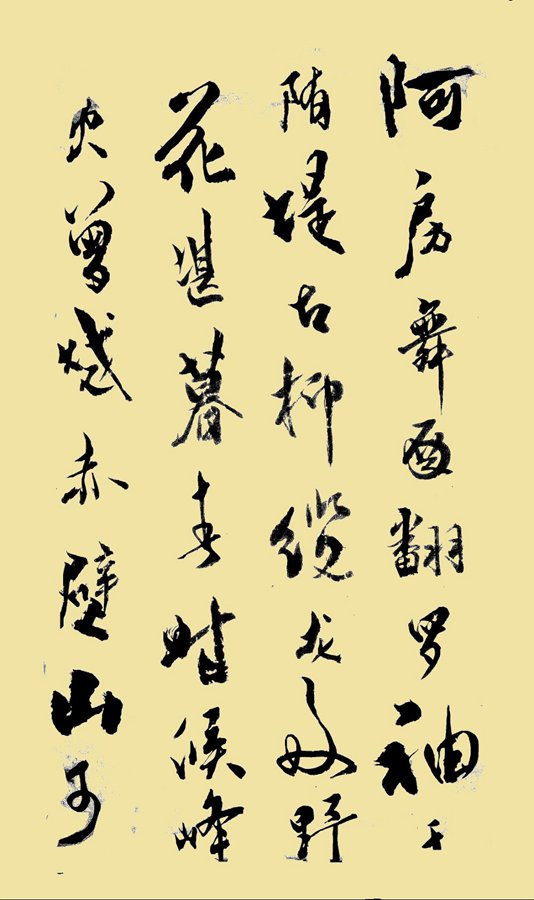 阿房舞翻罗袖千
隋堤古柳缆龙野
花暮春时候峰
火曾烧赤壁山